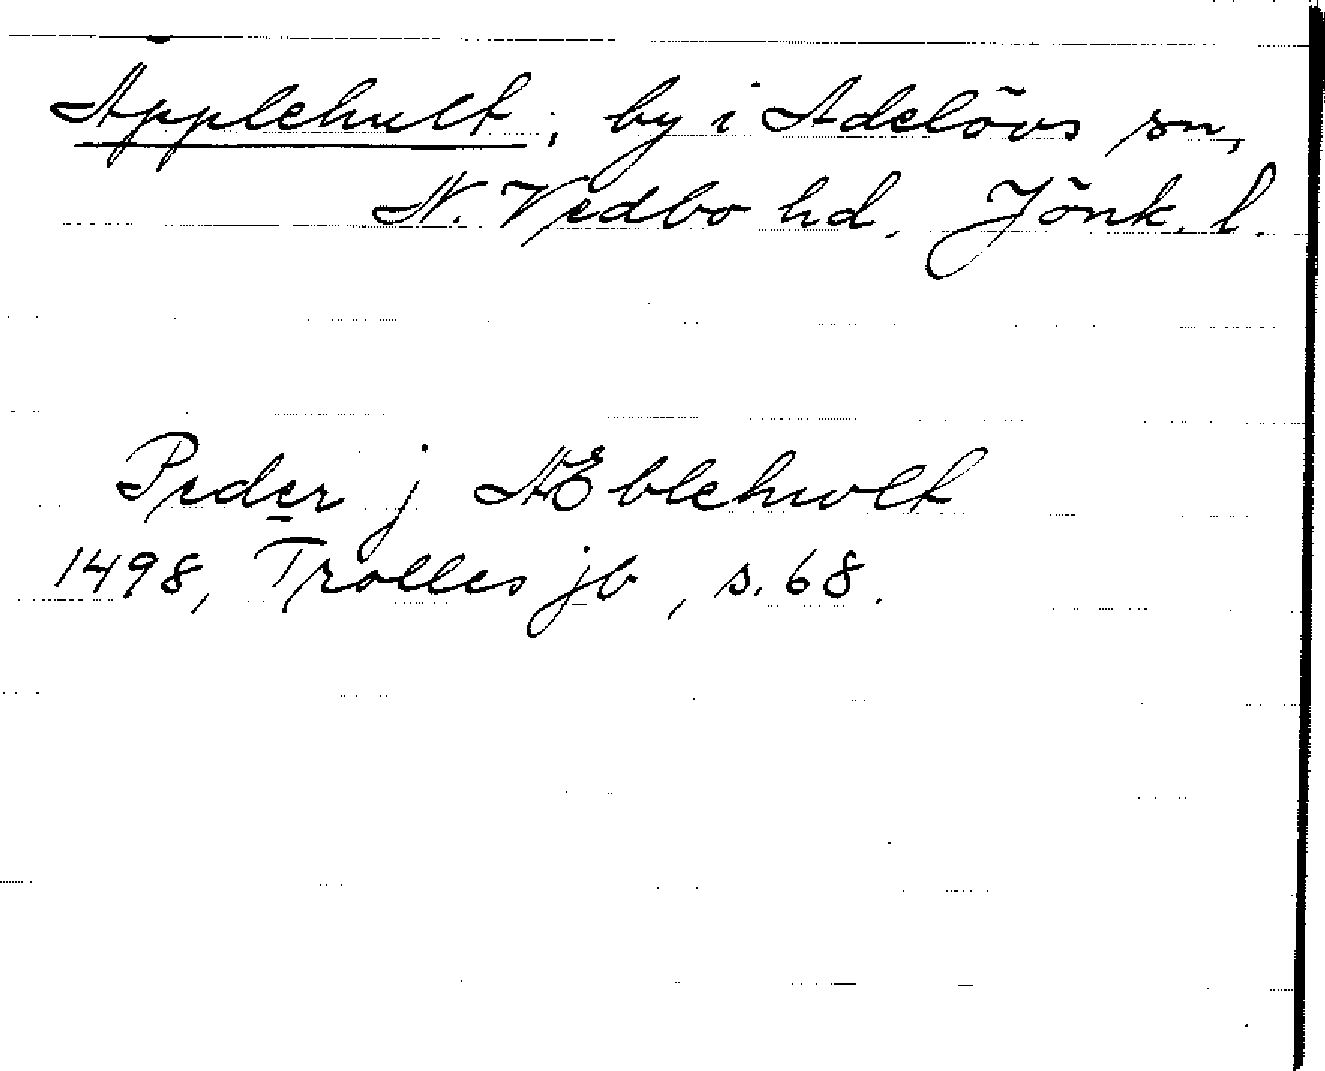 Applehult, by i Adelövs sn,
N. Vedbo hd. Jönk. l.
Peder j AEblehwlt
1498, Trolles jb, s. 68.